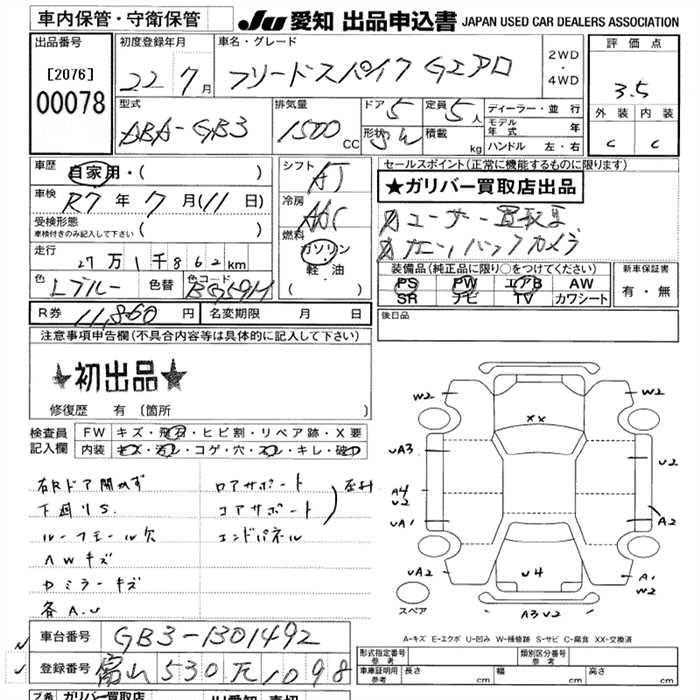 車内保管・守衛保管
JU 愛知 出品申込書 JAPAN USED CAR DEALERS ASSOCIATION
出品番号
[2076]
00078
初度登録年月
22 7月
車名・グレード
フリードスパイク Gエアロ
2WD
・
4WD
評価点
3.5
外装 内装
C C
型式
ABA-GB3
排気量
1500 CC
ドア
5
形状 SW
定員
5人
積載 kg
ディーラー・並行
モデル年式 年
ハンドル 左・右
車歴
自家用・( )
車検
R7年7月(11日)
受検形態
車検付きのみ記入して下さい ( )
走行
27万1千862km
色
Lブルー
色替
色コード
BG59M
シフト
AT
冷房
AAC
燃料
ガソリン
軽・油
( )
セールスポイント(正常に機能するものに限ります)
★ガリバー買取店出品
ユーザー買取車
バックカメラ
装備品(純正品に限り○をつけてください)
PS PW エアB AW
SR ナビ TV カワシート
新車保証書
有・無
R券 11,860円
名変期限 月 日
後日品
注意事項申告欄(不具合内容等は具体的に記入して下さい)
★初出品★
修復歴 有 〔箇所 〕
検査員記入欄
FW キズ・飛石・ヒビ割・リペア跡・X要
内装 キズ・汚レ・コゲ・穴・スレ・キレ・破ワ
右Rドア開かず
下廻りS.
ルーフモール欠
AWキズ
Dミラーキズ
各A.U
ロアサポート
コアサポート
エンドパネル
W2
W2
XX
UA3
U2
A4
U2
UA1
A2
UA2
U4
A1
W2
スペア
A3U2
A-キズ E-エクボ U-凹み W-補修跡 S-サビ C-腐食 XX-交換済
車台番号
GB3-1301492
登録番号
富山 530 て 1098
形式指定番号
参考
類別区分番号
参考
車庫証明用
参考
長さ cm
幅 cm
高さ cm
ガリバー買取店
JU愛知